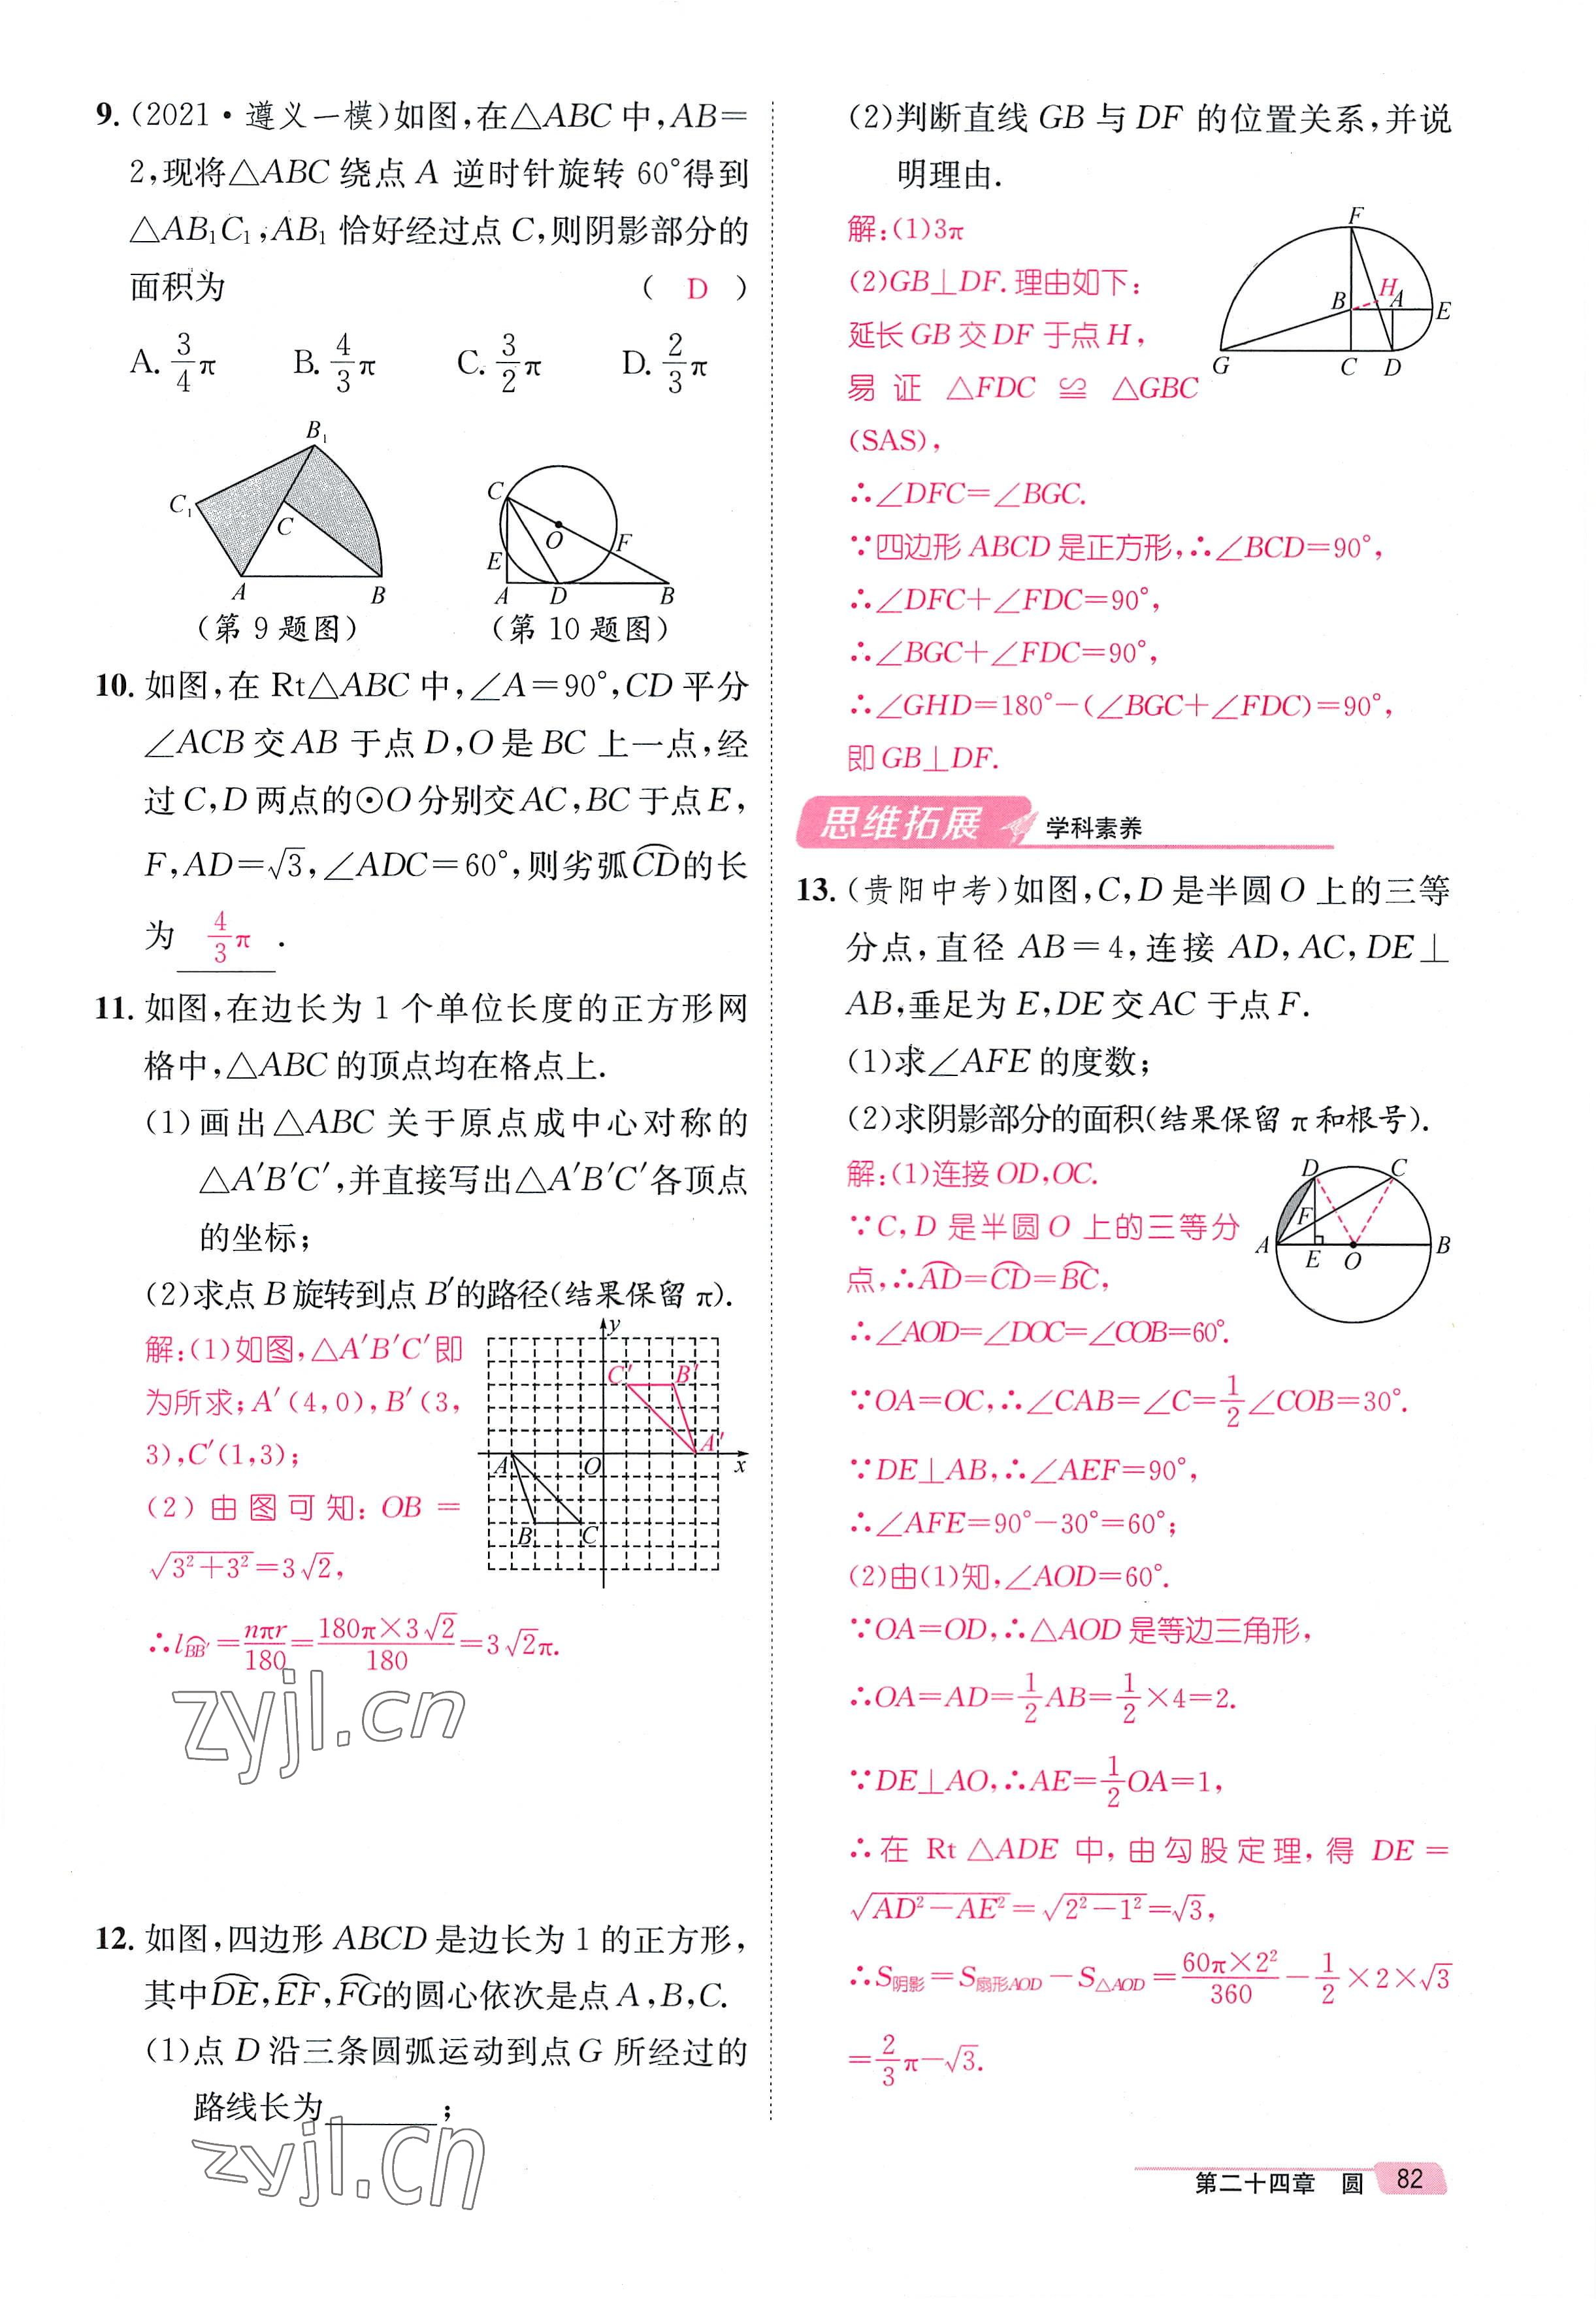 9. (2021·遵义一模)如图,在△ABC中,AB=
2,现将△ABC绕点A逆时针旋转60°得到
△AB₁C₁,AB₁恰好经过点C,则阴影部分的
面积为 ( D )
A. 3/4 π B. 4/3 π C. 3/2 π D. 2/3 π
B₁
C₁
C
A B
(第9题图)
C
O
F
E
A D B
(第10题图)
10. 如图,在Rt△ABC中,∠A=90°,CD平分
∠ACB交AB于点D,O是BC上一点,经
过C,D两点的⊙O分别交AC,BC于点E,
F,AD=√3,∠ADC=60°,则劣弧C͡D的长
为 4/3 π .
11. 如图,在边长为1个单位长度的正方形网
格中,△ABC的顶点均在格点上.
(1)画出△ABC关于原点成中心对称的
△A′B′C′,并直接写出△A′B′C′各顶点
的坐标;
(2)求点B旋转到点B′的路径(结果保留π).
解:(1)如图,△A′B′C′即
为所求;A′(4,0),B′(3,
3),C′(1,3);
(2)由图可知:OB=
√(3²+3²)=3√2,
∴l_BB′͡=nπr/180=180π×3√2/180=3√2π.
y
C′ B′
A′
A O x
B C
zyjl.cn
12. 如图,四边形ABCD是边长为1的正方形,
其中D͡E,E͡F,F͡G的圆心依次是点A,B,C.
(1)点D沿三条圆弧运动到点G所经过的
路线长为 ;
zyjl.cn
(2)判断直线GB与DF的位置关系,并说
明理由.
解:(1)3π
(2)GB⊥DF.理由如下:
延长GB交DF于点H,
易证△FDC≌△GBC
(SAS),
∴∠DFC=∠BGC.
∵四边形ABCD是正方形,∴∠BCD=90°,
∴∠DFC+∠FDC=90°,
∴∠BGC+∠FDC=90°,
∴∠GHD=180°-(∠BGC+∠FDC)=90°,
即GB⊥DF.
F
H
B A E
G C D
思维拓展 学科素养
13. (贵阳中考)如图,C,D是半圆O上的三等
分点,直径AB=4,连接AD,AC,DE⊥
AB,垂足为E,DE交AC于点F.
(1)求∠AFE的度数;
(2)求阴影部分的面积(结果保留π和根号).
解:(1)连接OD,OC.
∵C,D是半圆O上的三等分
点,∴A͡D=C͡D=B͡C,
∴∠AOD=∠DOC=∠COB=60°.
∵OA=OC,∴∠CAB=∠C=1/2∠COB=30°.
∵DE⊥AB,∴∠AEF=90°,
∴∠AFE=90°-30°=60°;
(2)由(1)知,∠AOD=60°.
∵OA=OD,∴△AOD是等边三角形,
∴OA=AD=1/2AB=1/2×4=2.
∵DE⊥AO,∴AE=1/2OA=1,
∴在Rt△ADE中,由勾股定理,得DE=
√(AD²-AE²)=√(2²-1²)=√3,
∴S阴影=S扇形AOD-S△AOD=60π×2²/360-1/2×2×√3
=2/3π-√3.
D C
F
A E O B
第二十四章 圆 82